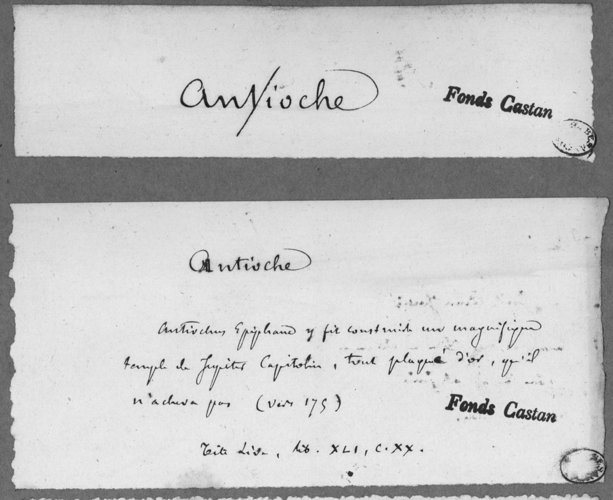 Antioche
Fonds Castan
Antioche
Antiochus Epiphane y fit construire un magnifique
temple de Jupiter Capitolin, tout plaqué d'or, qu'il
n'acheva pas (vers 175)
Fonds Castan
Tite Live, lib. XLI, c. XX.